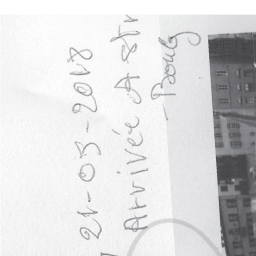 21-05-2018
Arrivée A str
-Boulg